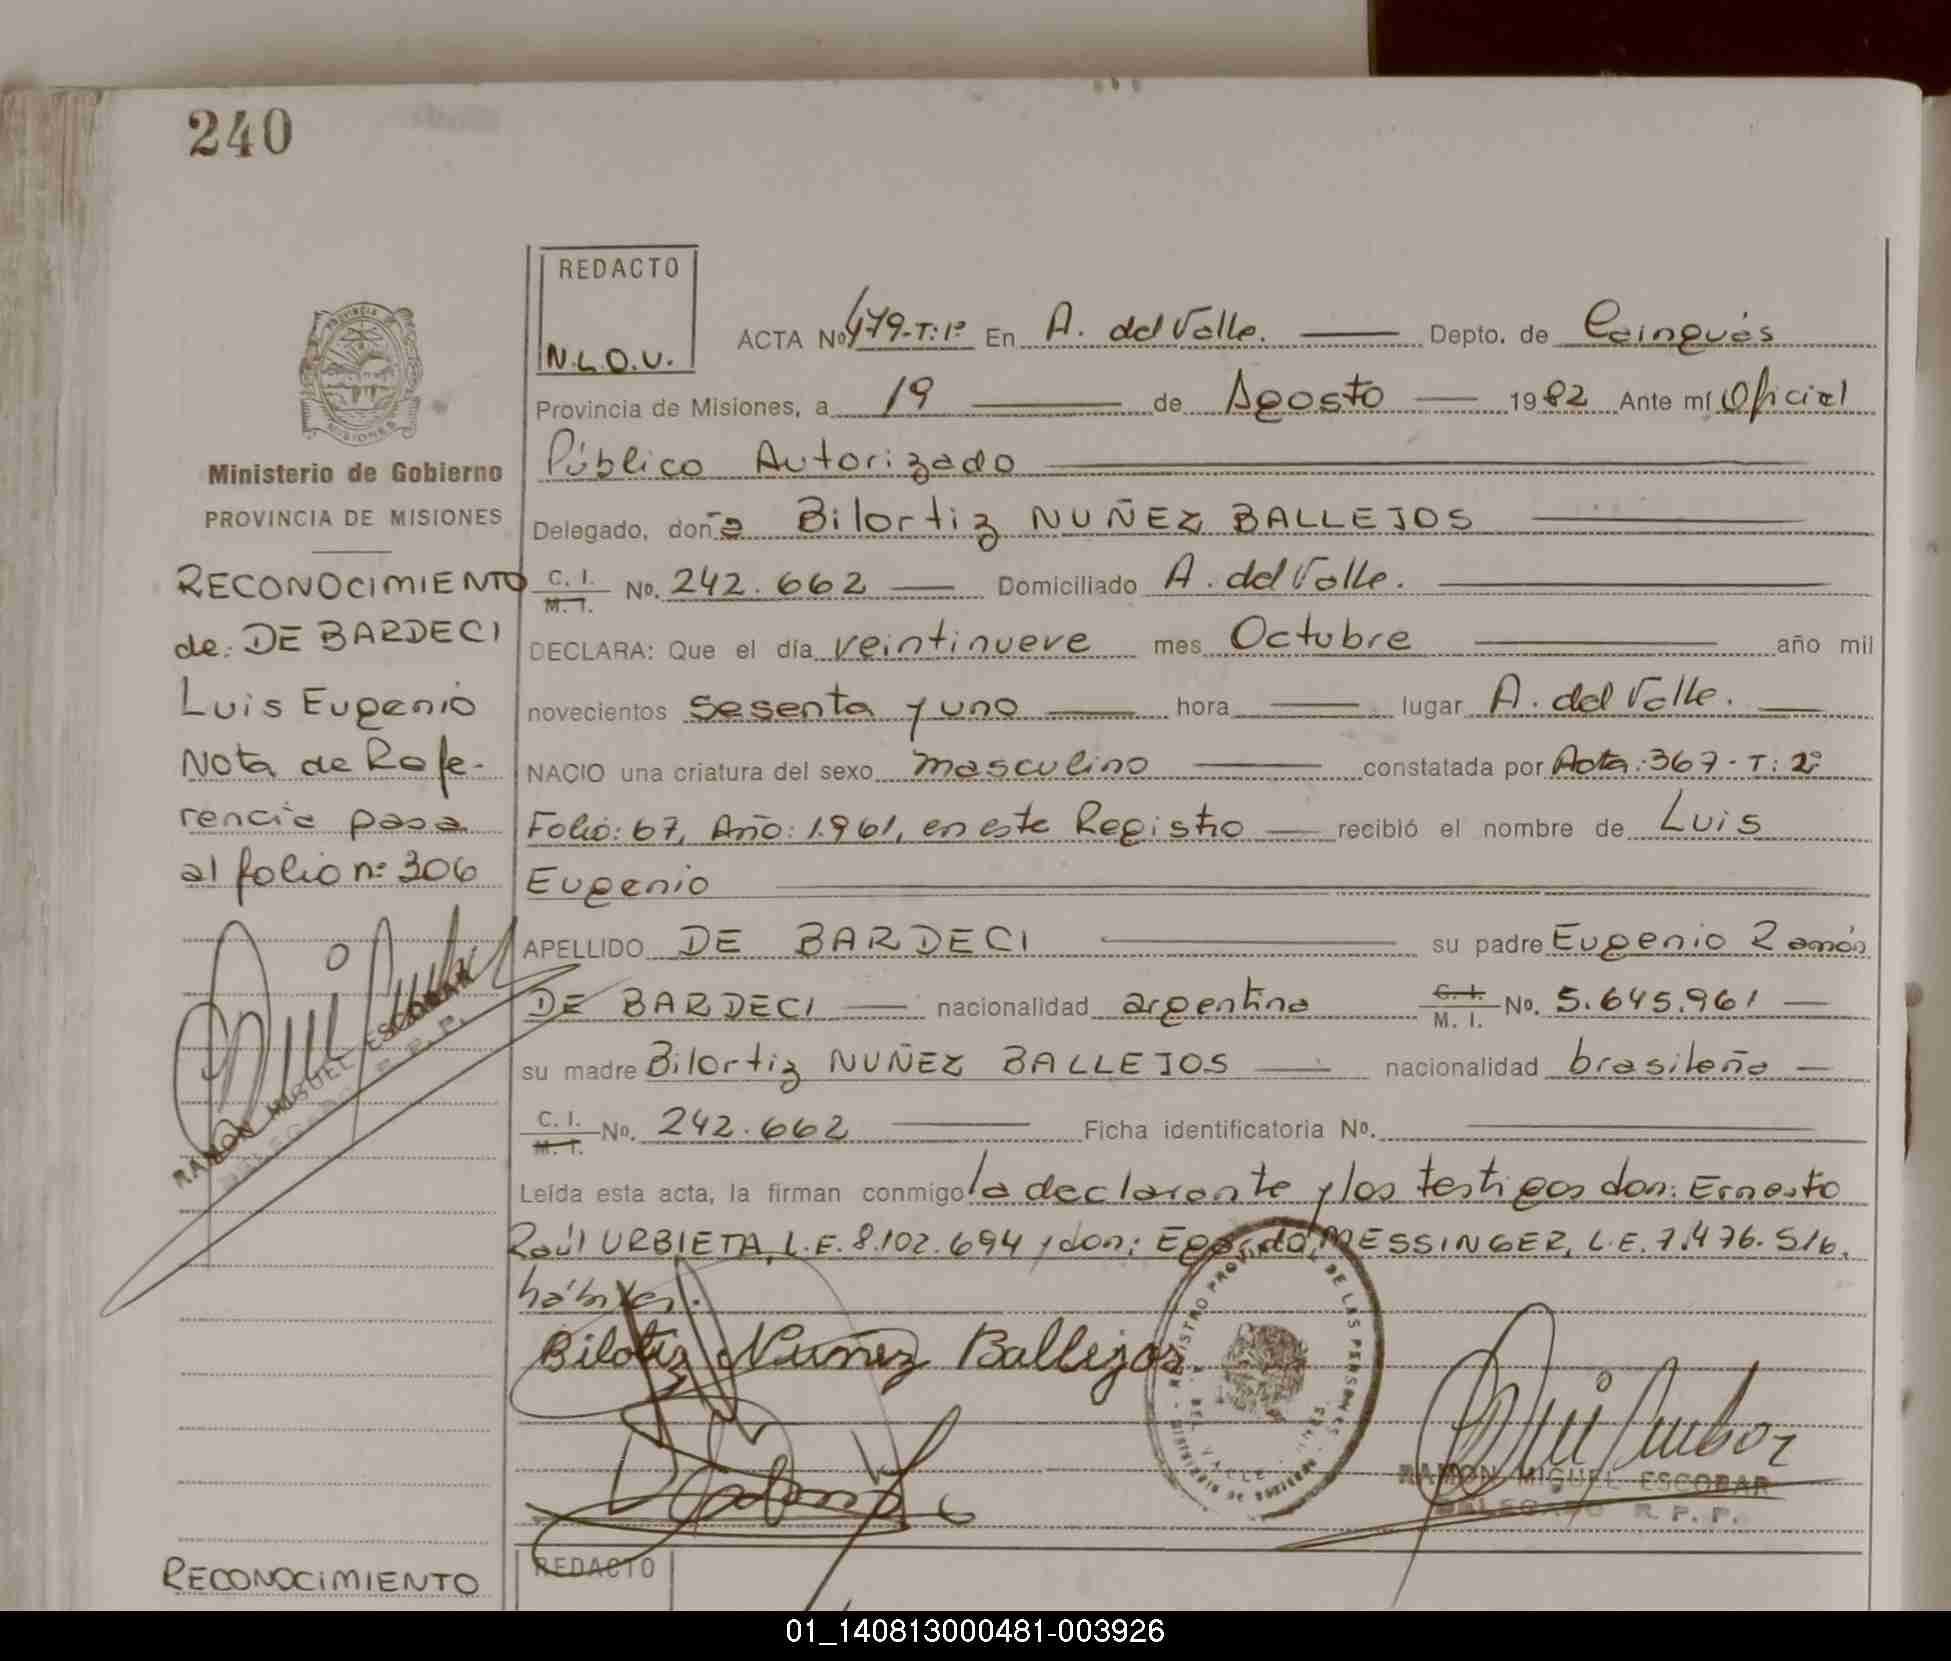 240
REDACTO
N.L.O.U.
ACTA Nº 479-T:1º En A. del Valle. Depto. de Cainguás
Provincia de Misiones, a 19 de Agosto 1982 Ante mí Oficial
Público Autorizado
Delegado, doña Bilortiz NUÑEZ BALLEJOS
C. I. M. I. No. 242.662 Domiciliado A. del Valle.
DECLARA: Que el día veintinueve mes Octubre año mil
novecientos sesenta y uno hora lugar A. del Valle.
NACIO una criatura del sexo masculino constatada por Acta: 367-T: 2º
Folio: 67, Año: 1.961, en este Registro recibió el nombre de Luis
Eugenio
APELLIDO DE BARDECI su padre Eugenio Ramón
DE BARDECI nacionalidad argentina C. I. M. I. No. 5.645.961
su madre Bilortiz NUÑEZ BALLEJOS nacionalidad brasileña
C. I. M. I. No. 242.662 Ficha identificatoria No.
Leída esta acta, la firman conmigo la declarante y los testigos don: Ernesto
Raúl URBIETA, L.E. 8.102.694 y don: Egardo MESSINGER, L.E. 7.476.516,
hábiles.
Bilotiz Nuñez Ballejos
RAMON MIGUEL ESCOBAR
DELEGADO R. P. P.
REDACTO
PROVINCIA
MISIONES
Ministerio de Gobierno
PROVINCIA DE MISIONES
RECONOCIMIENTO
de: DE BARDECI
Luis Eugenio
Nota de Refe-
rencia pasa
al folio nº 306
RAMON MIGUEL ESCOBAR
DELEGADO R. P. P.
RECONOCIMIENTO
01_140813000481-003926